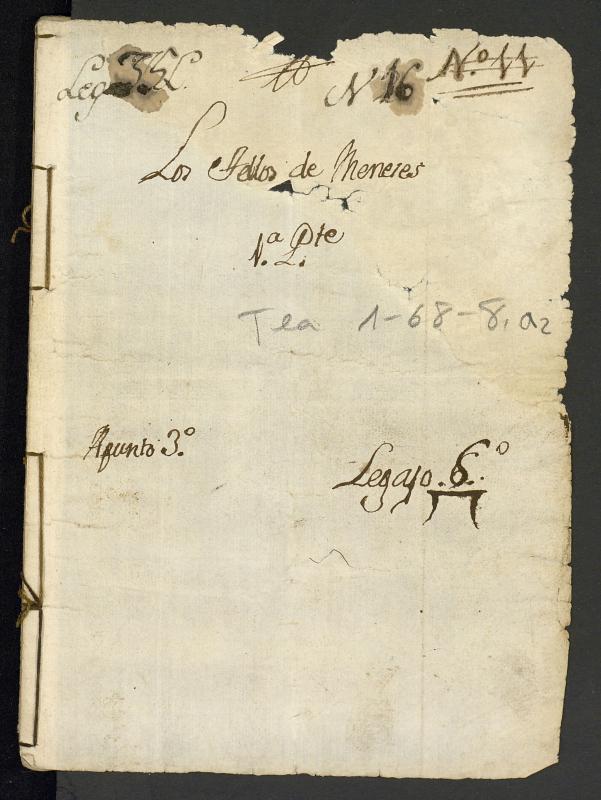 Leg. 35 L. 10 N.16 N.º 11
Los Tellos de Meneses
1.ª Pte
Tea 1-68-8, a2
Apunto 3.º
Legajo. 6.º